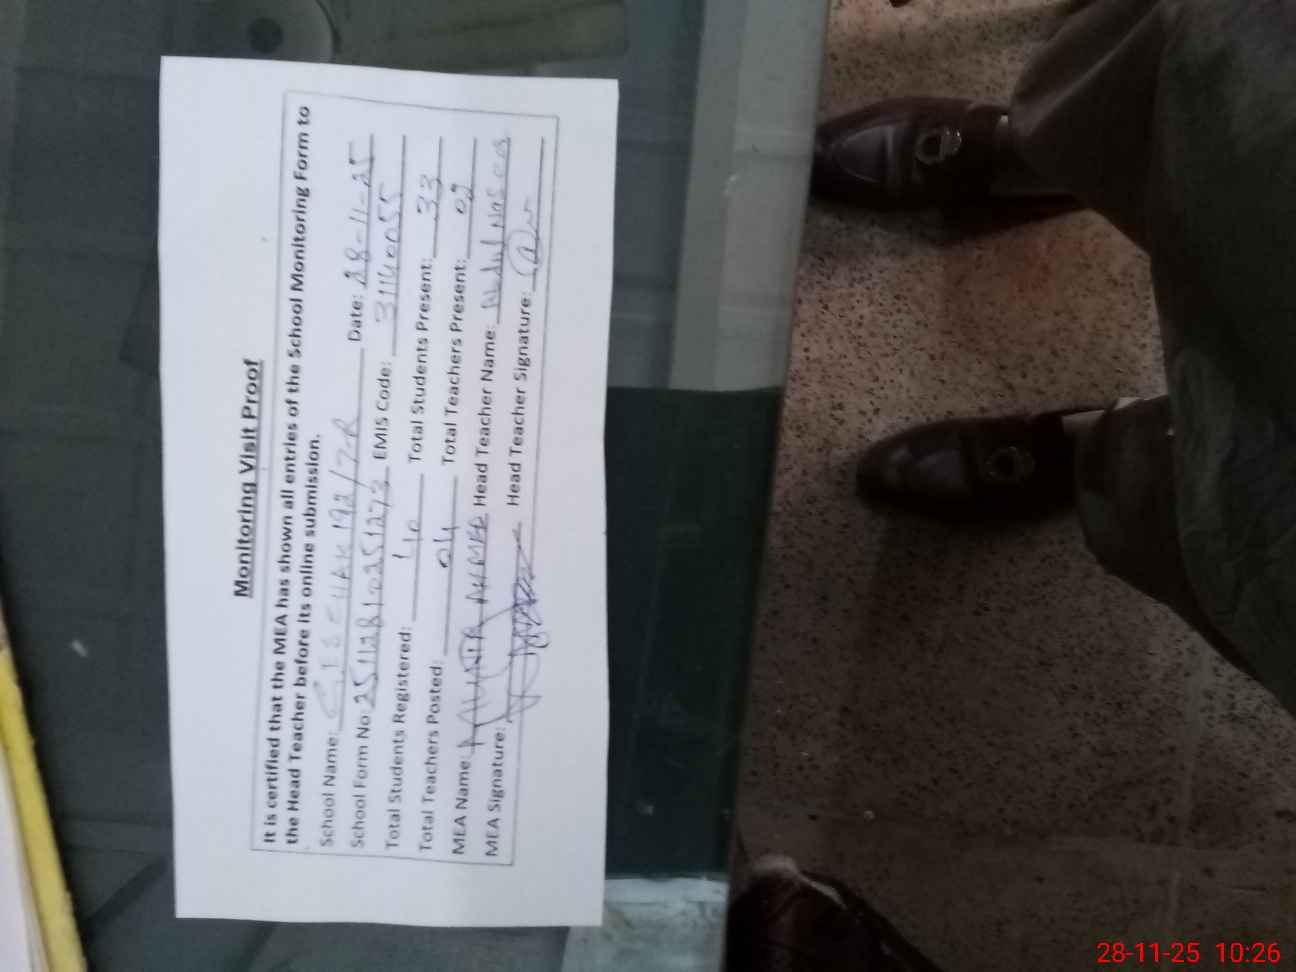 Monitoring Visit Proof
It is certified that the MEA has shown all entries of the School Monitoring Form to
the Head Teacher before its online submission.
School Name: CHAK 192/7R Date: 28-11-25
School Form No: 2511281025 1273 EMIS Code: 31140055
Total Students Registered: 40 Total Students Present: 33
Total Teachers Posted: 04 Total Teachers Present: 02
MEA Name: AHMED Head Teacher Name: Abdul
MEA Signature: Head Teacher Signature:
28-11-25 10:26